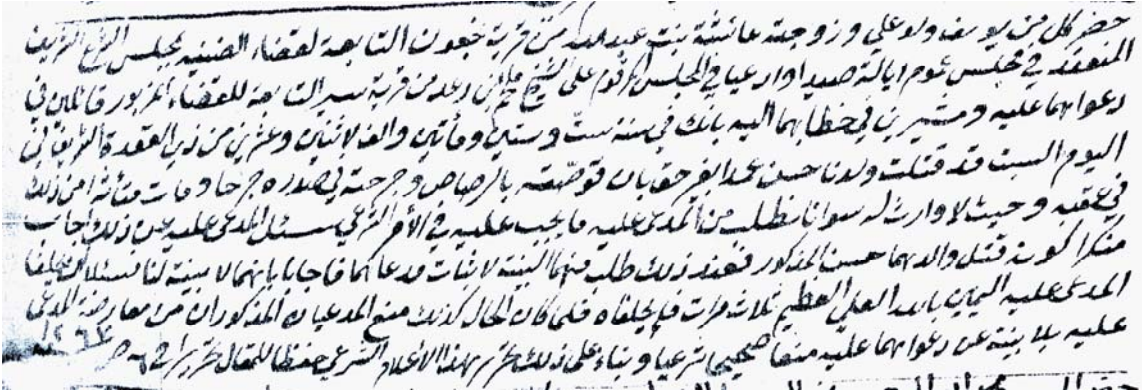 حضر كل من يوسف ولد علي وزوجته عائشة بنت عبد الله من قرية جفعون التابعة لقضاء الضنيه بمجلس الشرع الشريف
المنعقد في مجلس عموم ايالة صيدا وادعيا في المجلس المرقوم على الشيخ ملحم رعد من قرية سير التابعة للقضاء المزبور قائلين في
دعواهما عليه ومشيرين في خطابهما اليه بانك في سنة ست وستين ومأتين والف لاثنين وعشرين من ذي القعدة الشريفة في
اليوم السبت قد قتلت ولدنا حسن عمدا بغير حق بان قوصته بالرصاص وجرحته في صدره جرحا ومات متأثرا من ذلك
في عقبه وحيث لا وارث له سوانا نطلب من المدعى عليه ما يجب عليه في الأمر الشرعي سئل المدعى عليه عن ذلك اجاب
منكرا كونه قتل ولدهما حسن المذكور فعند ذلك طلب منهما البينة لاثبات مدعاهما فاجابا بانهما لا بينة لنا فسئلا ان يحلفا
المدعى عليه اليمين بالله العلي العظيم ثلاث مرات فلم يحلفاه فلما كان الحال كذلك منع المدعيان المذكوران من معارضة المدعى
عليه بلا بينة عن دعواهما عليه منعا صحيحا شرعيا وبناء على ذلك حرر بهذا الاعلام الشرعي حفظا للمقال تحريرا في